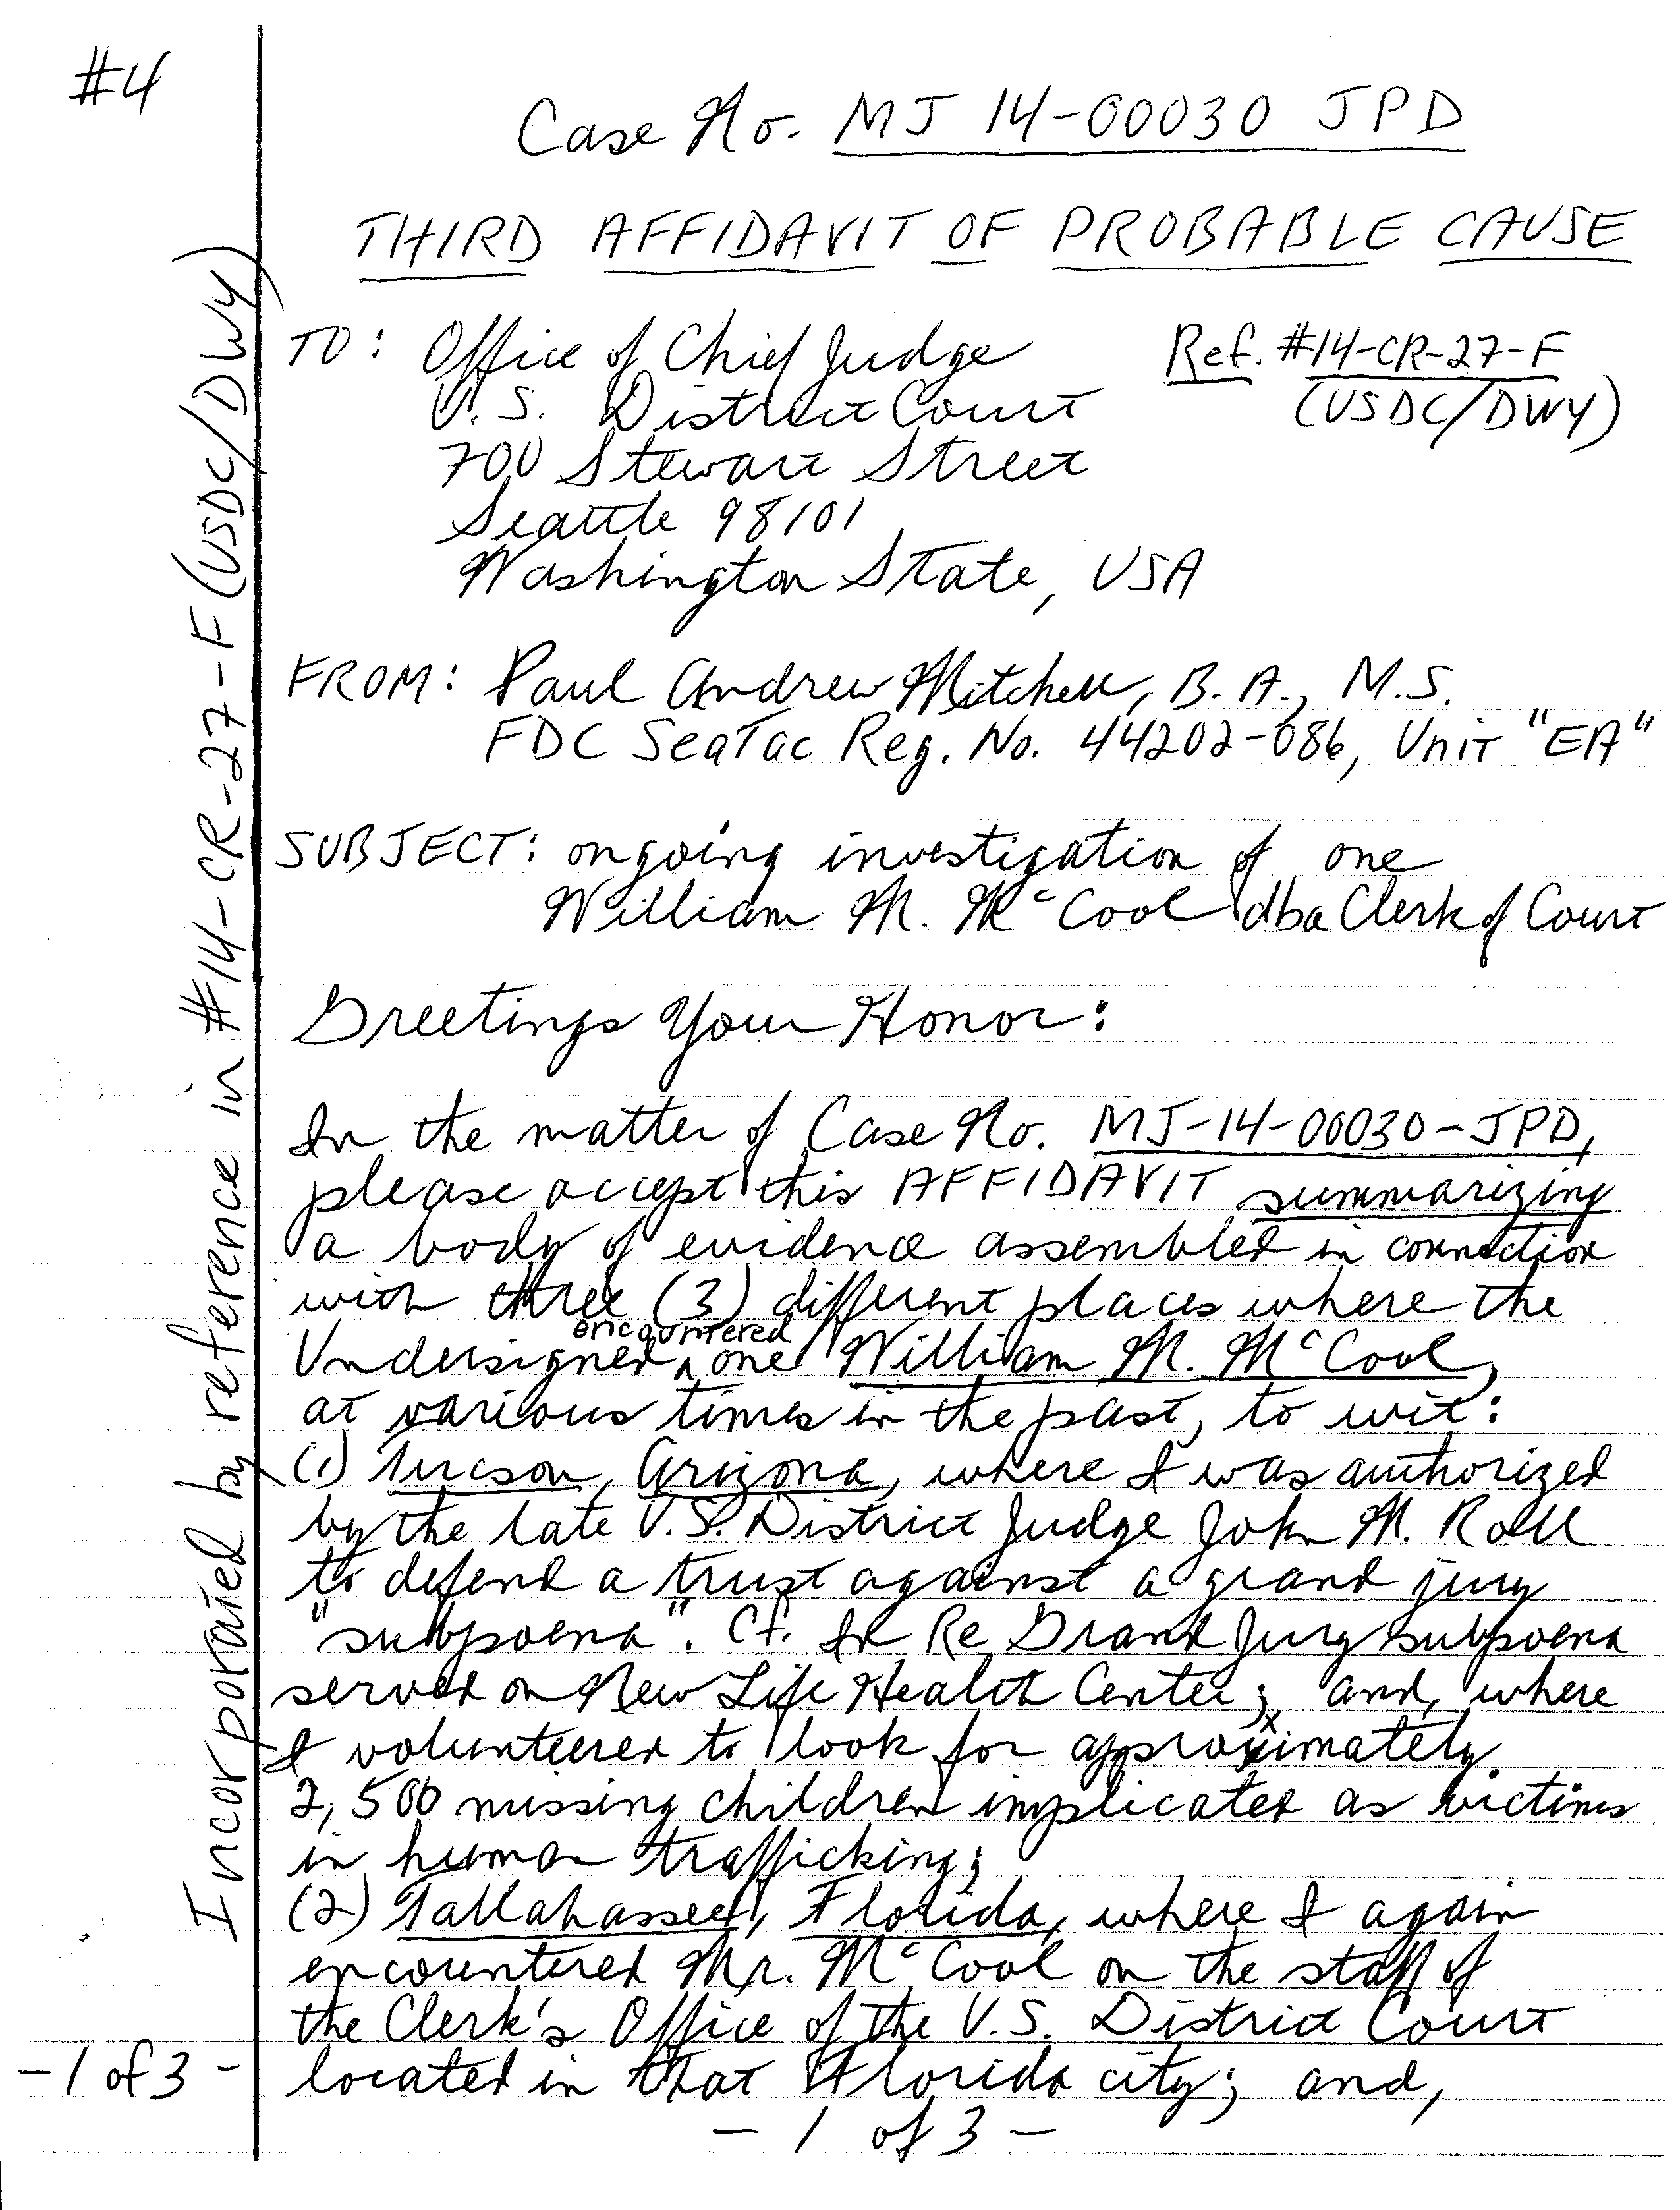 #4
Case No. MJ 14-00030 JPD
THIRD AFFIDAVIT OF PROBABLE CAUSE
TO: Office of Chief Judge
Ref. #14-CR-27-F
U.S. District Court
(USDC/DWY)
700 Stewart Street
Seattle 98101
Washington State, USA
FROM: Paul Andrew Mitchell, B.A., M.S.
FDC SeaTac Reg. No. 44202-086, Unit "EA"
SUBJECT: ongoing investigation of one
William M. McCool dba Clerk of Court
Greetings Your Honor:
In the matter of Case No. MJ-14-00030-JPD,
please accept this AFFIDAVIT summarizing
a body of evidence assembled in connection
with three (3) different places where the
encountered
Undersigned ^ one William M. McCool,
at various times in the past, to wit:
(1) Tucson, Arizona, where I was authorized
by the late U.S. District Judge John M. Roll
to defend a trust against a grand jury
"subpoena". Cf. In Re Grand Jury Subpoena
served on New Life Health Center; and, where
I volunteered to look for approximately
2,500 missing children implicated as victims
in human trafficking;
(2) Tallahassee, Florida, where I again
encountered Mr. McCool on the staff of
the Clerk's Office of the U.S. District Court
located in that Florida city; and,
- 1 of 3 -
- 1 of 3 -
Incorporated by reference in #14-CR-27-F (USDC/DWY)